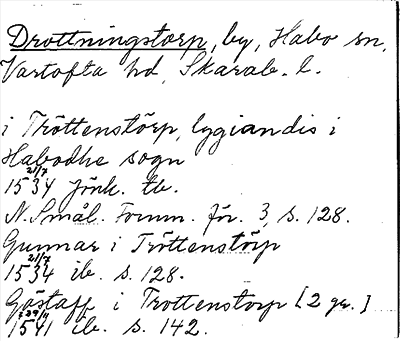 Drottningstorp, by, Habo sn,
Vartofta hd, Skarab. l.
i Tröttenstörp, lygiandis i
Habodhe sogn
21/7
1534 Jönk. tb.
N. Smål. Fornm. för. 3, s. 128.
Gunnar i Tröttenstörp
21/7
1534 ib. s. 128.
Göstaff i Trottenstorp [2 gr.]
1541 ib. s. 142.